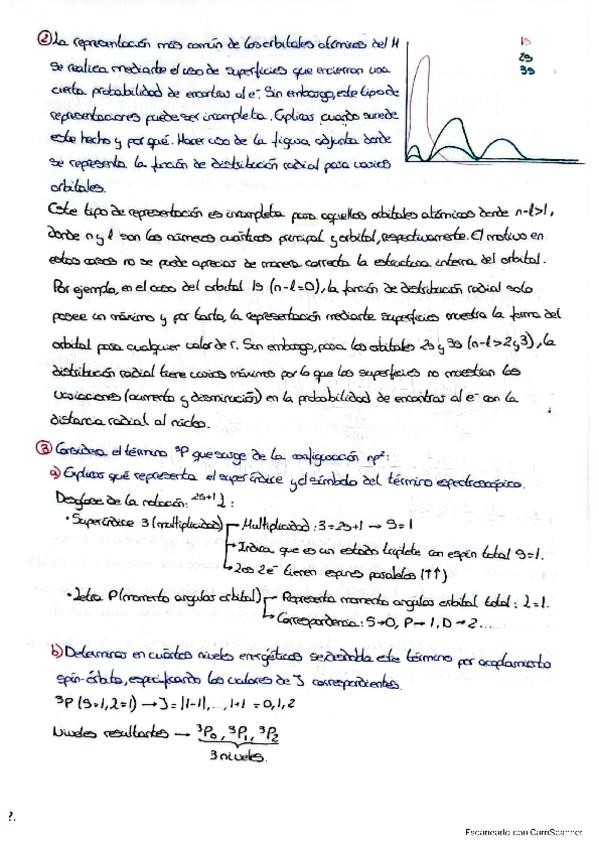 ② La representación más común de los orbitales atómicos del H
se realiza mediante el uso de superficies que encierran una
cierta probabilidad de encontrar al e⁻. Sin embargo, este tipo de
representaciones puede ser incompleta. Explicar cuando sucede
este hecho y por qué. Hacer uso de la figura adjunta donde
se representa la función de distribución radial para varios
orbitales.
1s
2s
3s
Este tipo de representación es incompleta para aquellos orbitales atómicos donde n-l>1,
donde n y l son los números cuánticos principal y orbital, respectivamente. El motivo en
estos casos no se puede apreciar de manera correcta la estructura interna del orbital.
Por ejemplo, en el caso del orbital 1s (n-l=0), la función de distribución radial solo
posee un máximo y por tanto, la representación mediante superficies muestra la forma del
orbital para cualquier valor de r. Sin embargo, para los orbitales 2s y 3s (n-l>2y3), la
distribución radial tiene varios máximos por lo que las superficies no muestran las
variaciones (aumento y disminución) en la probabilidad de encontrar al e⁻ con la
distancia radial al núcleo.
③ Considera el término ³P que surge de la configuración np²:
a) Explicar qué representa el superíndice y el símbolo del término espectroscópico.
Desglose de la notación: ²ˢ⁺¹L:
• Superíndice 3 (multiplicidad) → Multiplicidad: 3=2s+1 → S=1
→ Indica que es un estado triplete con espín total S=1.
→ Los 2e⁻ tienen espines paralelos (↑↑)
• Letra P (momento angular orbital) → Representa momento angular orbital total: L=1.
→ Correspondencia: S→0, P→1, D→2...
b) Determinar en cuántos niveles energéticos se desdobla este término por acoplamiento
spin-órbita, especificando los valores de J correspondientes.
³P (S=1, L=1) → J = |1-1|, ..., 1+1 = 0,1,2
Niveles resultantes → ³P₀, ³P₁, ³P₂
3 niveles.
2.
Escaneado con CamScanner